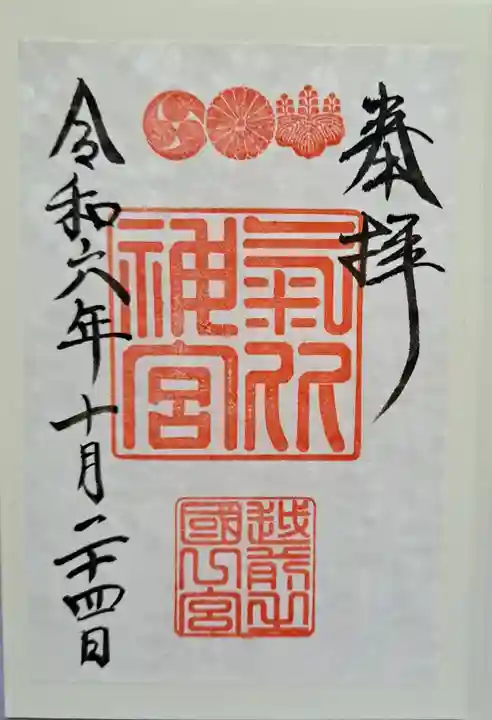 奉拝
氣比
神宮
越前之
國一宮
令和六年十月二十四日